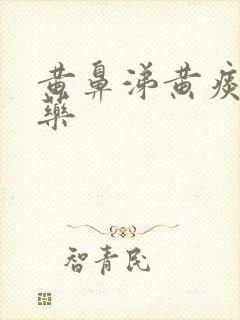 黄鼻涕黄痰
藥
智青民